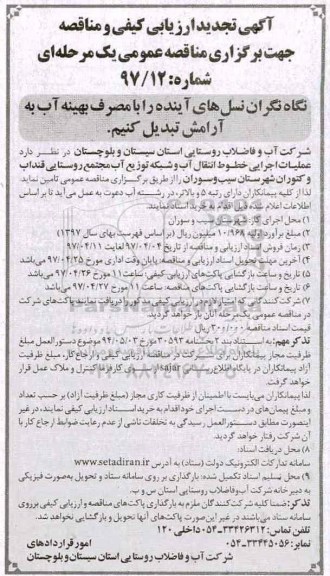 آگهی تجدید ارزیابی کیفی و مناقصه
جهت برگزاری مناقصه عمومی یک مرحله‌ای
شماره: ۹۷/۱۲
نگاه نگران نسل‌های آینده را با مصرف بهینه آب به
آرامش تبدیل کنیم.
شرکت آب و فاضلاب روستایی استان سیستان و بلوچستان در نظر دارد
عملیات اجرایی خطوط انتقال آب و شبکه توزیع آب مجتمع روستایی قنداب
و کتوران شهرستان سیب و سوران را از طریق برگزاری مناقصه عمومی تامین نماید
لذا از کلیه پیمانکاران دارای رتبه ۵ و بالاتر، در رشته آب دعوت به عمل می‌آید تا بر اساس
اطلاعات اعلام شده اقدام به خرید اسناد نمایند.
۱) محل اجرای کار: شهرستان سیب و سوران
۲) مبلغ برآورد اولیه: ۱۰/۹۶۸ میلیون ریال (بر اساس فهرست بهای سال ۱۳۹۷)
۳) زمان فروش اسناد ارزیابی و مناقصه از تاریخ ۹۷/۰۴/۰۴ لغایت ۹۷/۰۴/۱۱
۴) آخرین مهلت تحویل اسناد ارزیابی و مناقصه: پایان وقت اداری مورخ ۹۷/۰۴/۲۵ می‌باشد
۵) تاریخ و ساعت بازگشایی پاکت‌های ارزیابی کیفی: ساعت ۱۱ مورخ ۹۷/۰۴/۲۶ می‌باشد
۶) تاریخ و ساعت بازگشایی پاکت‌های مناقصه: ساعت ۱۱ مورخ ۹۷/۰۴/۲۷ می‌باشد
۷) شرکت کنندگانی که امتیاز لازم ارزیابی کیفی مذکور را دریافت نمایند پاکت‌های شرکت
در مناقصه عمومی یک مرحله آنان باز خواهد گردید.
قیمت اسناد مناقصه ۳۰۰/۰۰۰ ریال
تذکر مهم: به استناد بند ۲ بخشنامه ۳۰۵۹۳ مورخ ۹۴/۰۵/۰۳ موضوع دستورالعمل مبلغ
ظرفیت مجاز پیمانکاران برای شرکت در مناقصه ارزیابی کیفی و ارجاع کار، مبلغ ظرفیت
آزاد پیمانکاران در پایگاه اطلاع‌رسانی sajar از سوی کارفرما کنترل و ملاک عمل قرار
خواهد گرفت.
لذا پیمانکاران می‌بایست با اطمینان از ظرفیت کاری مجاز (مبلغ ظرفیت آزاد) بر حسب تعداد
و مبلغ پیمان‌های در دست اجرای خود اقدام به خرید اسناد ارزیابی کیفی نمایند، در غیر
اینصورت مطابق دستورالعمل رسیدگی به تخلفات ناشی از عدم رعایت ضوابط ارجاع کار با
آن شرکت رفتار خواهد گردید.
۸) محل دریافت اسناد:
سامانه تدارکات الکترونیک دولت (ستاد) به آدرس www.setadiran.ir
۹) محل تسلیم اسناد تکمیل شده: بارگذاری بر روی سامانه ستاد و تحویل به‌صورت فیزیکی
به دبیرخانه شرکت آب و فاضلاب روستایی استان س و ب.
تذکر: ضمنا کلیه شرکت‌کنندگان ملزم به بارگذاری پاکت‌های مناقصه و ارزیابی بر روی
سامانه ستاد می‌باشند در غیر این صورت پاکت‌های آنها تحویل و بازگشایی نخواهد شد.
تلفن: ۳۳۴۲۶۳۱۲-۰۵۴ داخلی ۱۲۰
نمابر: ۳۳۴۴۵۰۵۶-۰۵۴
امور قراردادهای
شرکت آب و فاضلاب روستایی استان سیستان و بلوچستان